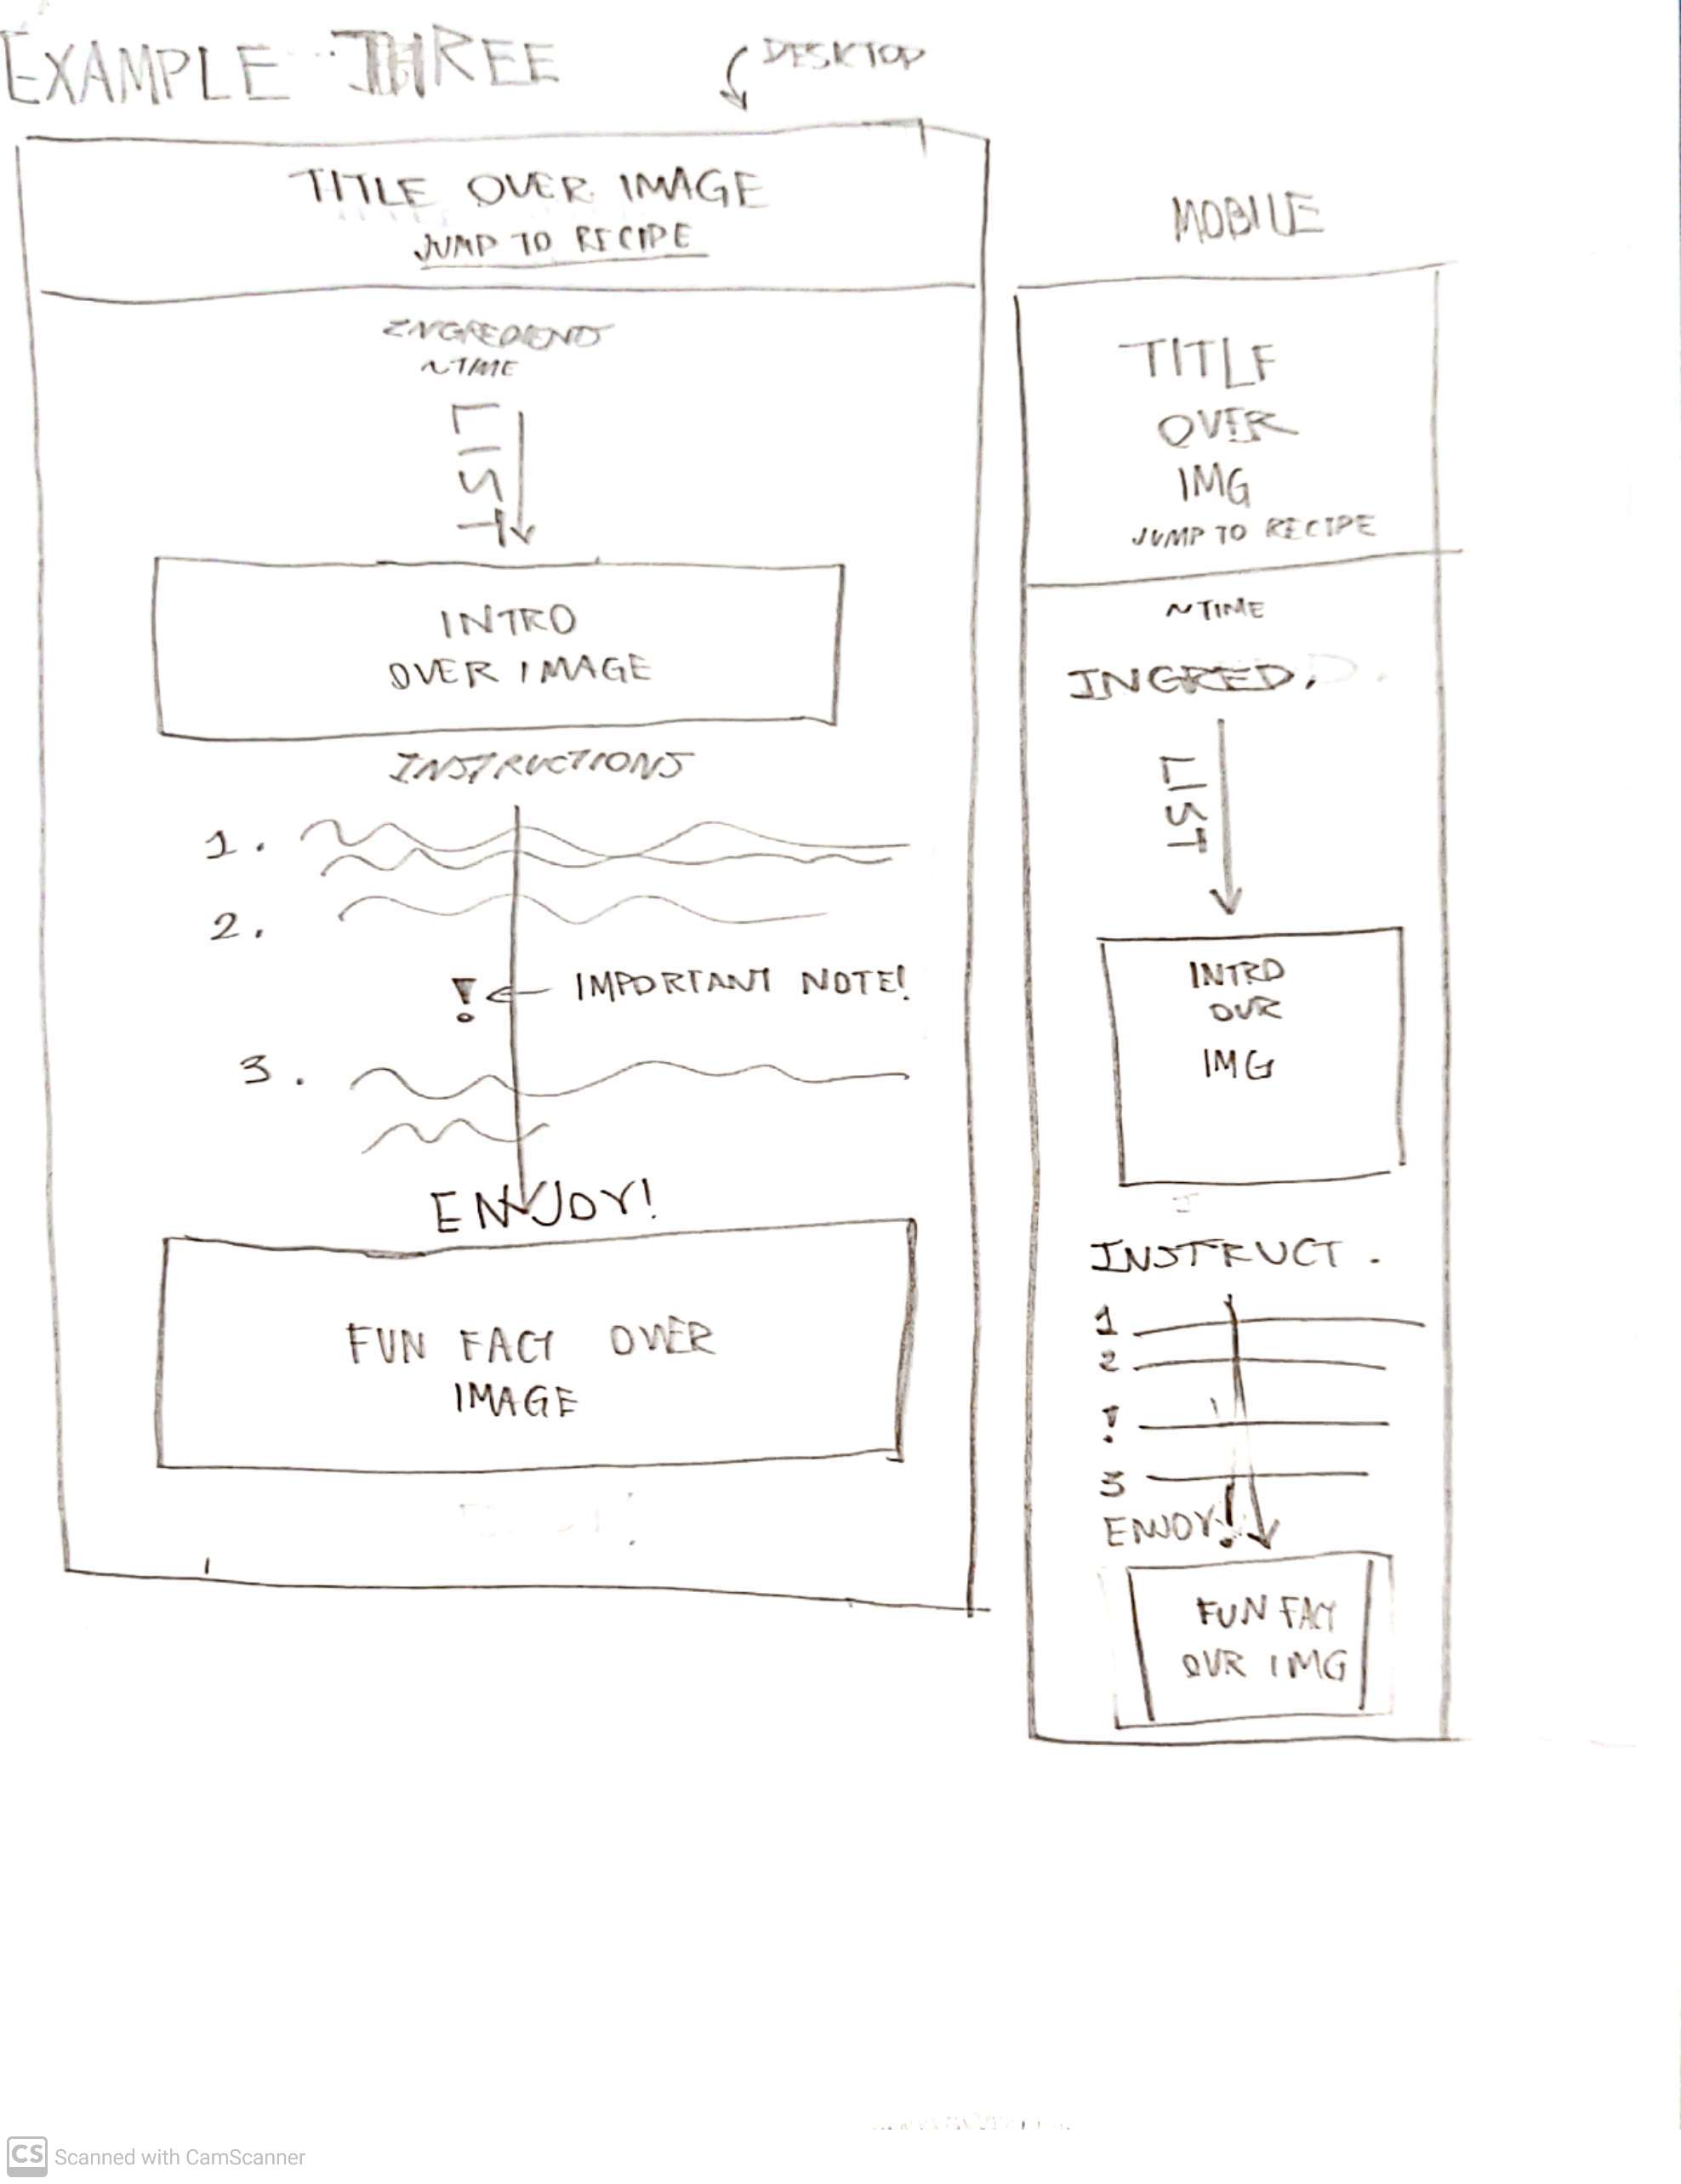 EXAMPLE THREE
DESKTOP
TITLE OVER IMAGE
JUMP TO RECIPE
INGREDIENTS
~TIME
LIST
INTRO
OVER IMAGE
INSTRUCTIONS
1.
2.
! IMPORTANT NOTE!
3.
ENJOY!
FUN FACT OVER
IMAGE
MOBILE
TITLE
OVER
IMG
JUMP TO RECIPE
~TIME
INGRED.
LIST
INTRO
OVR
IMG
INSTRUCT.
1
2
!
3
ENJOY!
FUN FACT
OVR IMG
CS Scanned with CamScanner